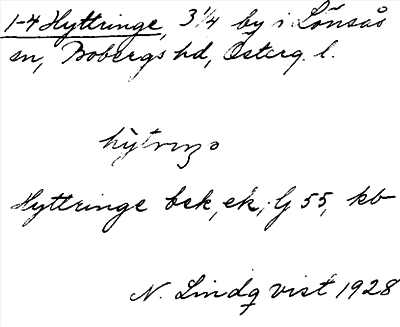 1-4 Hyttringe, 3 1/4 by i Lönsås
sn, Bobergs hd, Österg. l.
Hyttringe bek, ek, G 55, kb
N. Lindqvist 1928